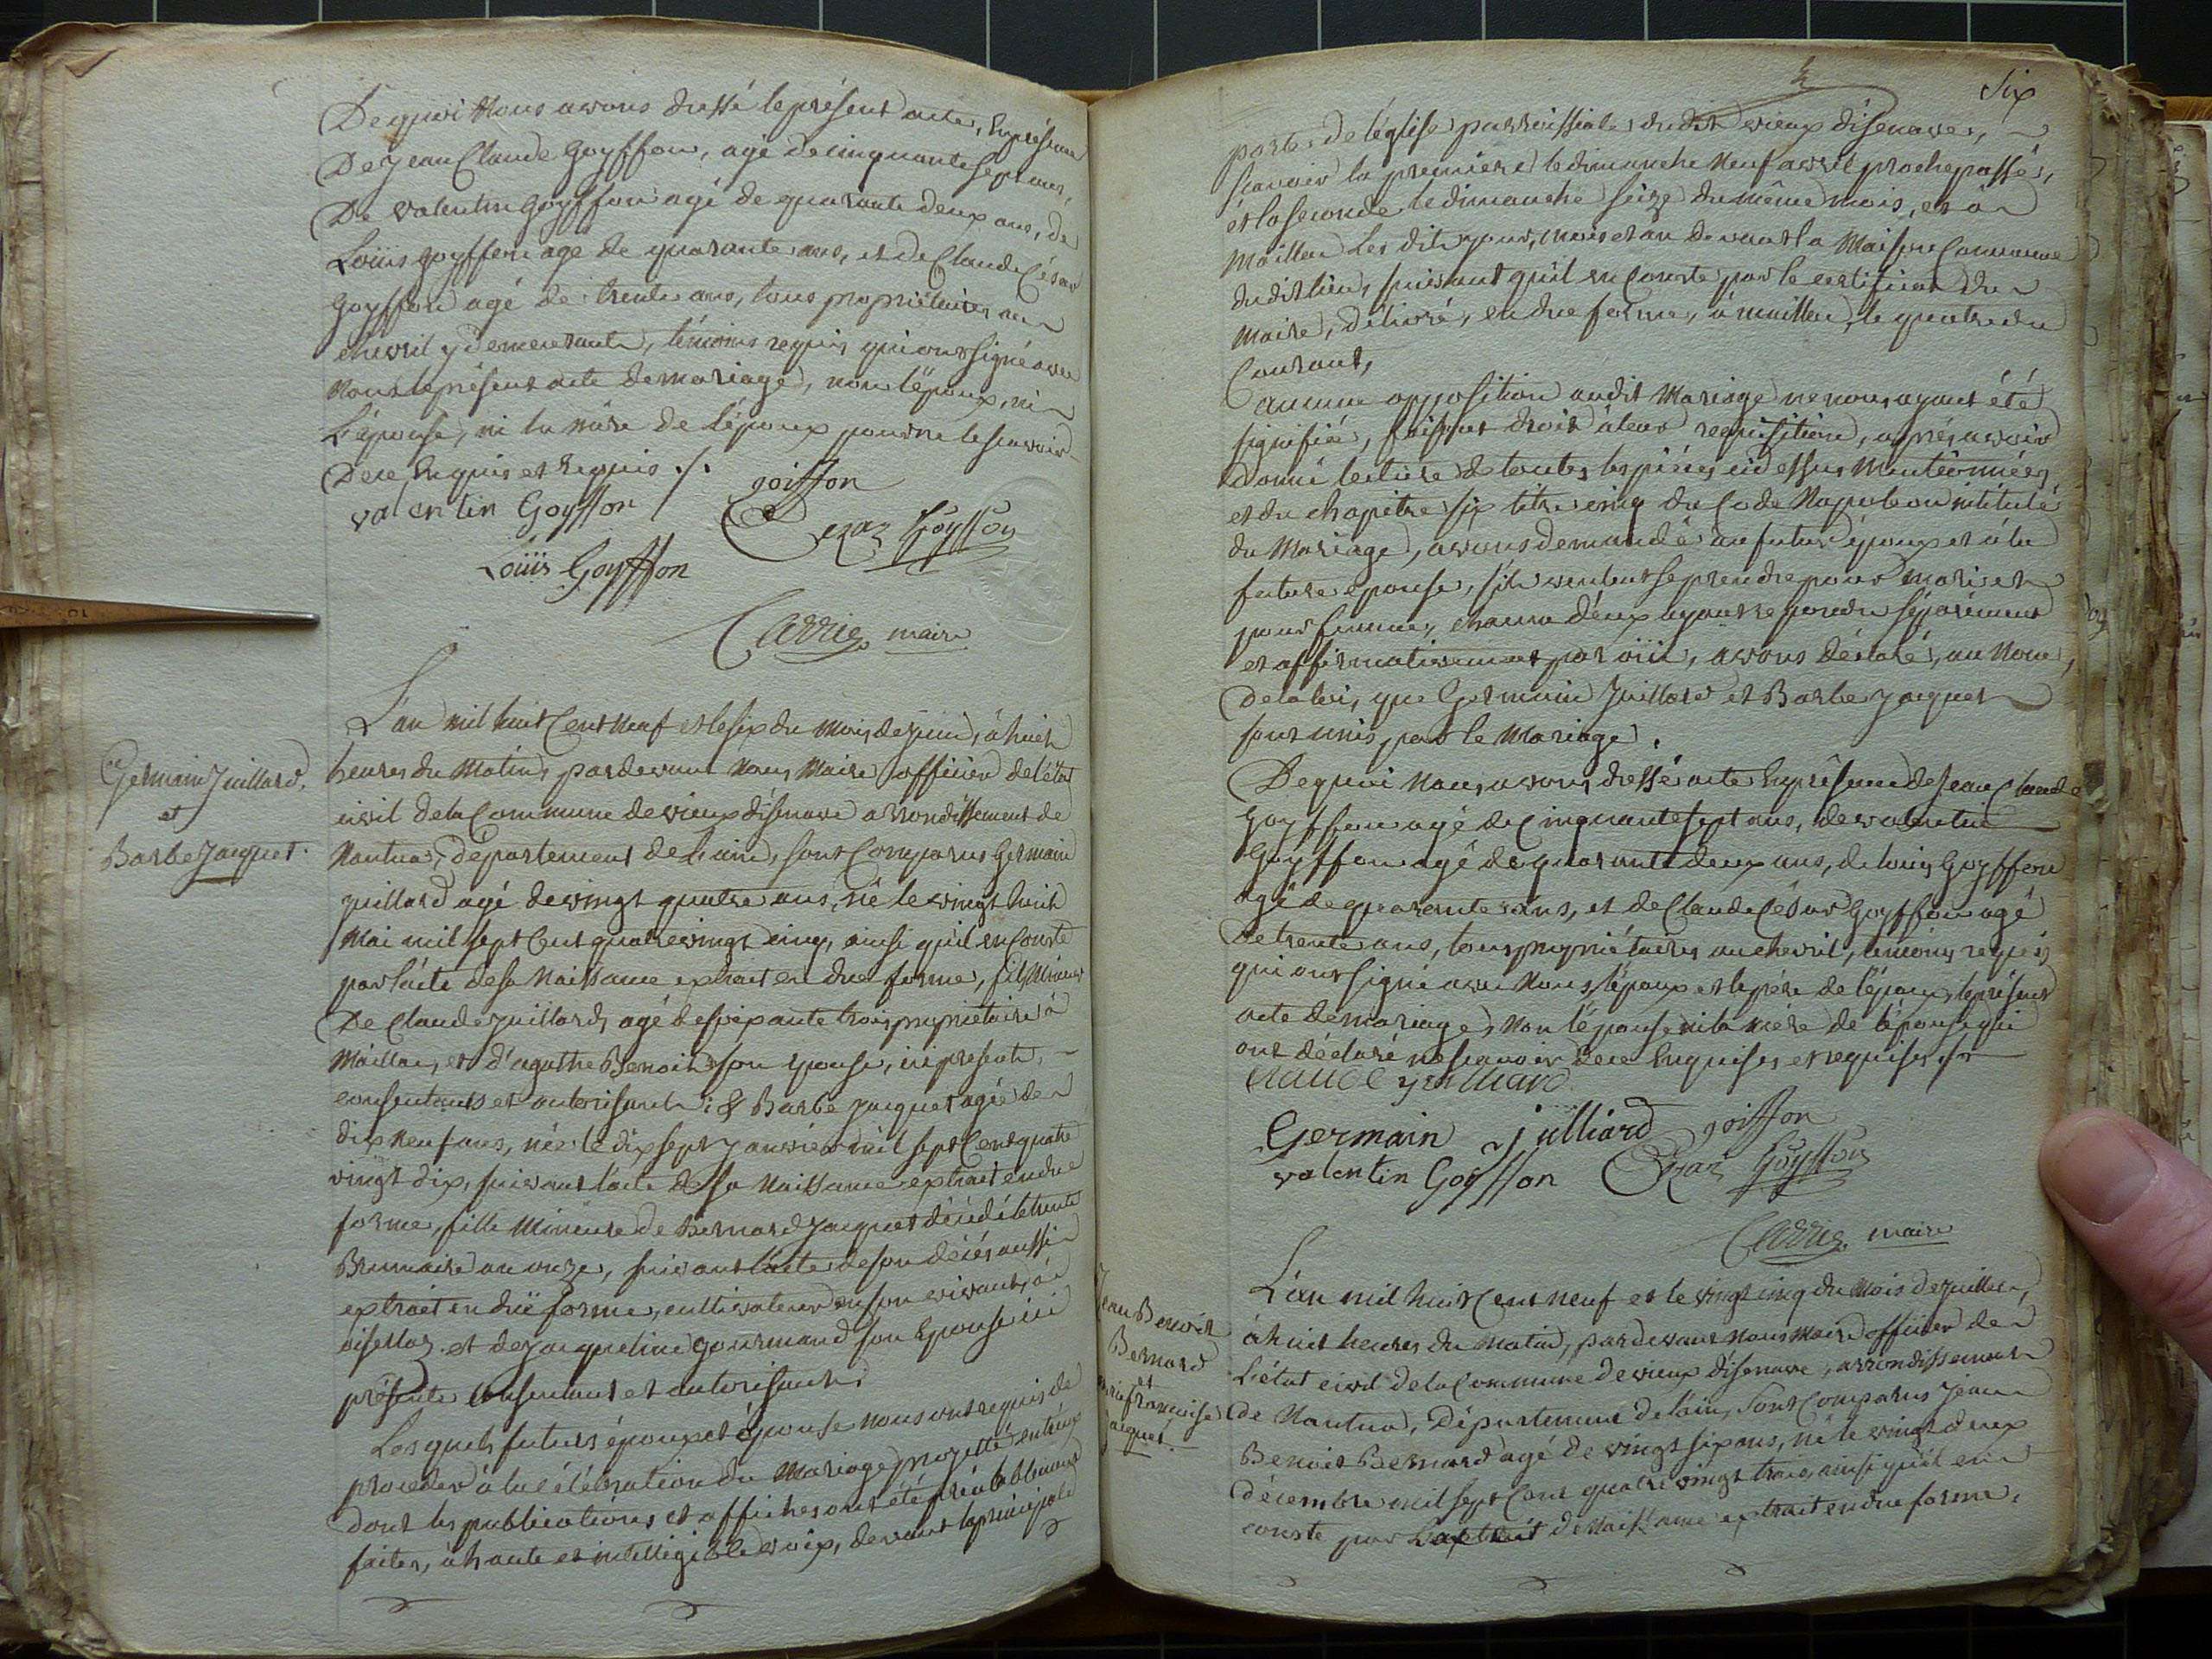 De quoi Nous avons dressé le présent acte, En présence
De Jean Claude Goyffon, agé de cinquante sept ans,
De valentin Goyffon agé de quarante deux ans, de
Loüis Goyffon agé de quarante ans, et de Claude César
Goyffon agé de trente ans, tous propriétaires au
chevril y demeurants, témoins requis qui ont signé avec
Nous le présent acte de mariage, non l'époux, ni
L'épouse, ni la mère de l'époux pour ne le scavoir
De ce Enquis et Requis ./.
valentin Goyffon goiffon
Cezar Goyffon
Loüis Goyffon
Carrier maire
Germain Juillard.
et
Barbe Jacquet.
L'an mil huit Cent Neuf et le six du Mois de juin, à huit
heures du Matin, pardevant Nous Maire officier de l'état
civil de la Commune de vieux d'isenave arrondissement de
Nantua, département de L'ain, sont Comparus Germain
juillard agé de vingt quatre ans, né le vingt huit
Mai mil sept Cent quatre vingt cinq, ainsi qu'il en Conste
par l'acte de sa Naissance extrait en due forme, fils Mineur
De Claude juillard, agé de soixante trois, propriétaire à
Maillac, et d'agathe Benoit son épouse, ici présents,
consentants et autorisants; & Barbe jacquet agée de
dix neuf ans, née le dix sept janvier mil sept Cent quatre
vingt dix, suivant l'acte de sa Naissance extrait en due
forme, fille Mineure de Bernard jacquet décédé le trente
Brumaire an onze, suivant l'acte de son décés aussi
extrait en düe forme, cultivateur en son vivant, à
oisellaz et de jacqueline gourmand son Epouse ici
présente Consentant et autorisant;
Lesquels futurs époux et épouse nous ont requis de
proceder à la célébration du Mariage projetté entr'eux
dont les publications et affiches ont été préalablement
faites, à haute et intelligible voix, devant la principale
Six
porte de l'église parroissiale dudit vieux d'isenave,
scavoir la première le dimanche Neuf avril proche passé,
et la seconde le dimanche seize du même mois, et à
Maillac Les dits jours, mois et an devant la Maison Commune
dudit lieu, suivant qu'il en Conste par le certificat du
Maire, délivré, en due forme, à maillac, le quatre du
Courant,
aucune opposition audit Mariage ne nous ayant été
signifiée, faisant droit à leur requisition, après avoir
donné lecture de toutes les pièces ci dessus Mentionnées,
et du chapitre six titre cinq du Code Napoleon intitulé
du Mariage, avons demandé au futur époux et à la
future épouse, s'ils veulent se prendre pour mari et
pour femme, chacun d'eux ayant répondu séparément
et affirmativement par oüi, avons déclaré, au Nom,
De la loi, que Germain Juillard et Barbe jacquet
sont unis par le Mariage.
De quoi Nous avons dressé acte En présence de Jean Claude
Goyffon agé de Cinquante sept ans, de valentin
Goyffon agé de quarante deux ans, de louis Goyffon
agé de quarante ans, et de Claude César Goyffon agé
de trente ans, tous propriétaires au chevril, témoins requis
qui ont signé avec Nous, l'époux et le père de l'époux, le présent
acte de mariage, Non l'épouse ni la mere de l'épouse qui
ont déclaré ne scavoir de ce Enquises et requises ./.
claude juilliard
Germain julliard goiffon
valentin Goyffon Cezar Goyffon
Carrier maire
Jean Benoit
Bernard
et
françoise
jacquet.
L'an mil huit Cent neuf et le vingt cinq du Mois de juillet,
à huit heures du Matin, pardevant Nous Maire officier de
L'état civil de la Commune de vieux d'isenave, arrondissement
de Nantua, Département de l'ain, Sont Comparus Jean
Benoit Bernard agé de vingt six ans, né le vingt deux
décembre mil sept Cent quatre vingt trois, ainsi qu'il en
conste par L'extrait de Naissance extrait en due forme,